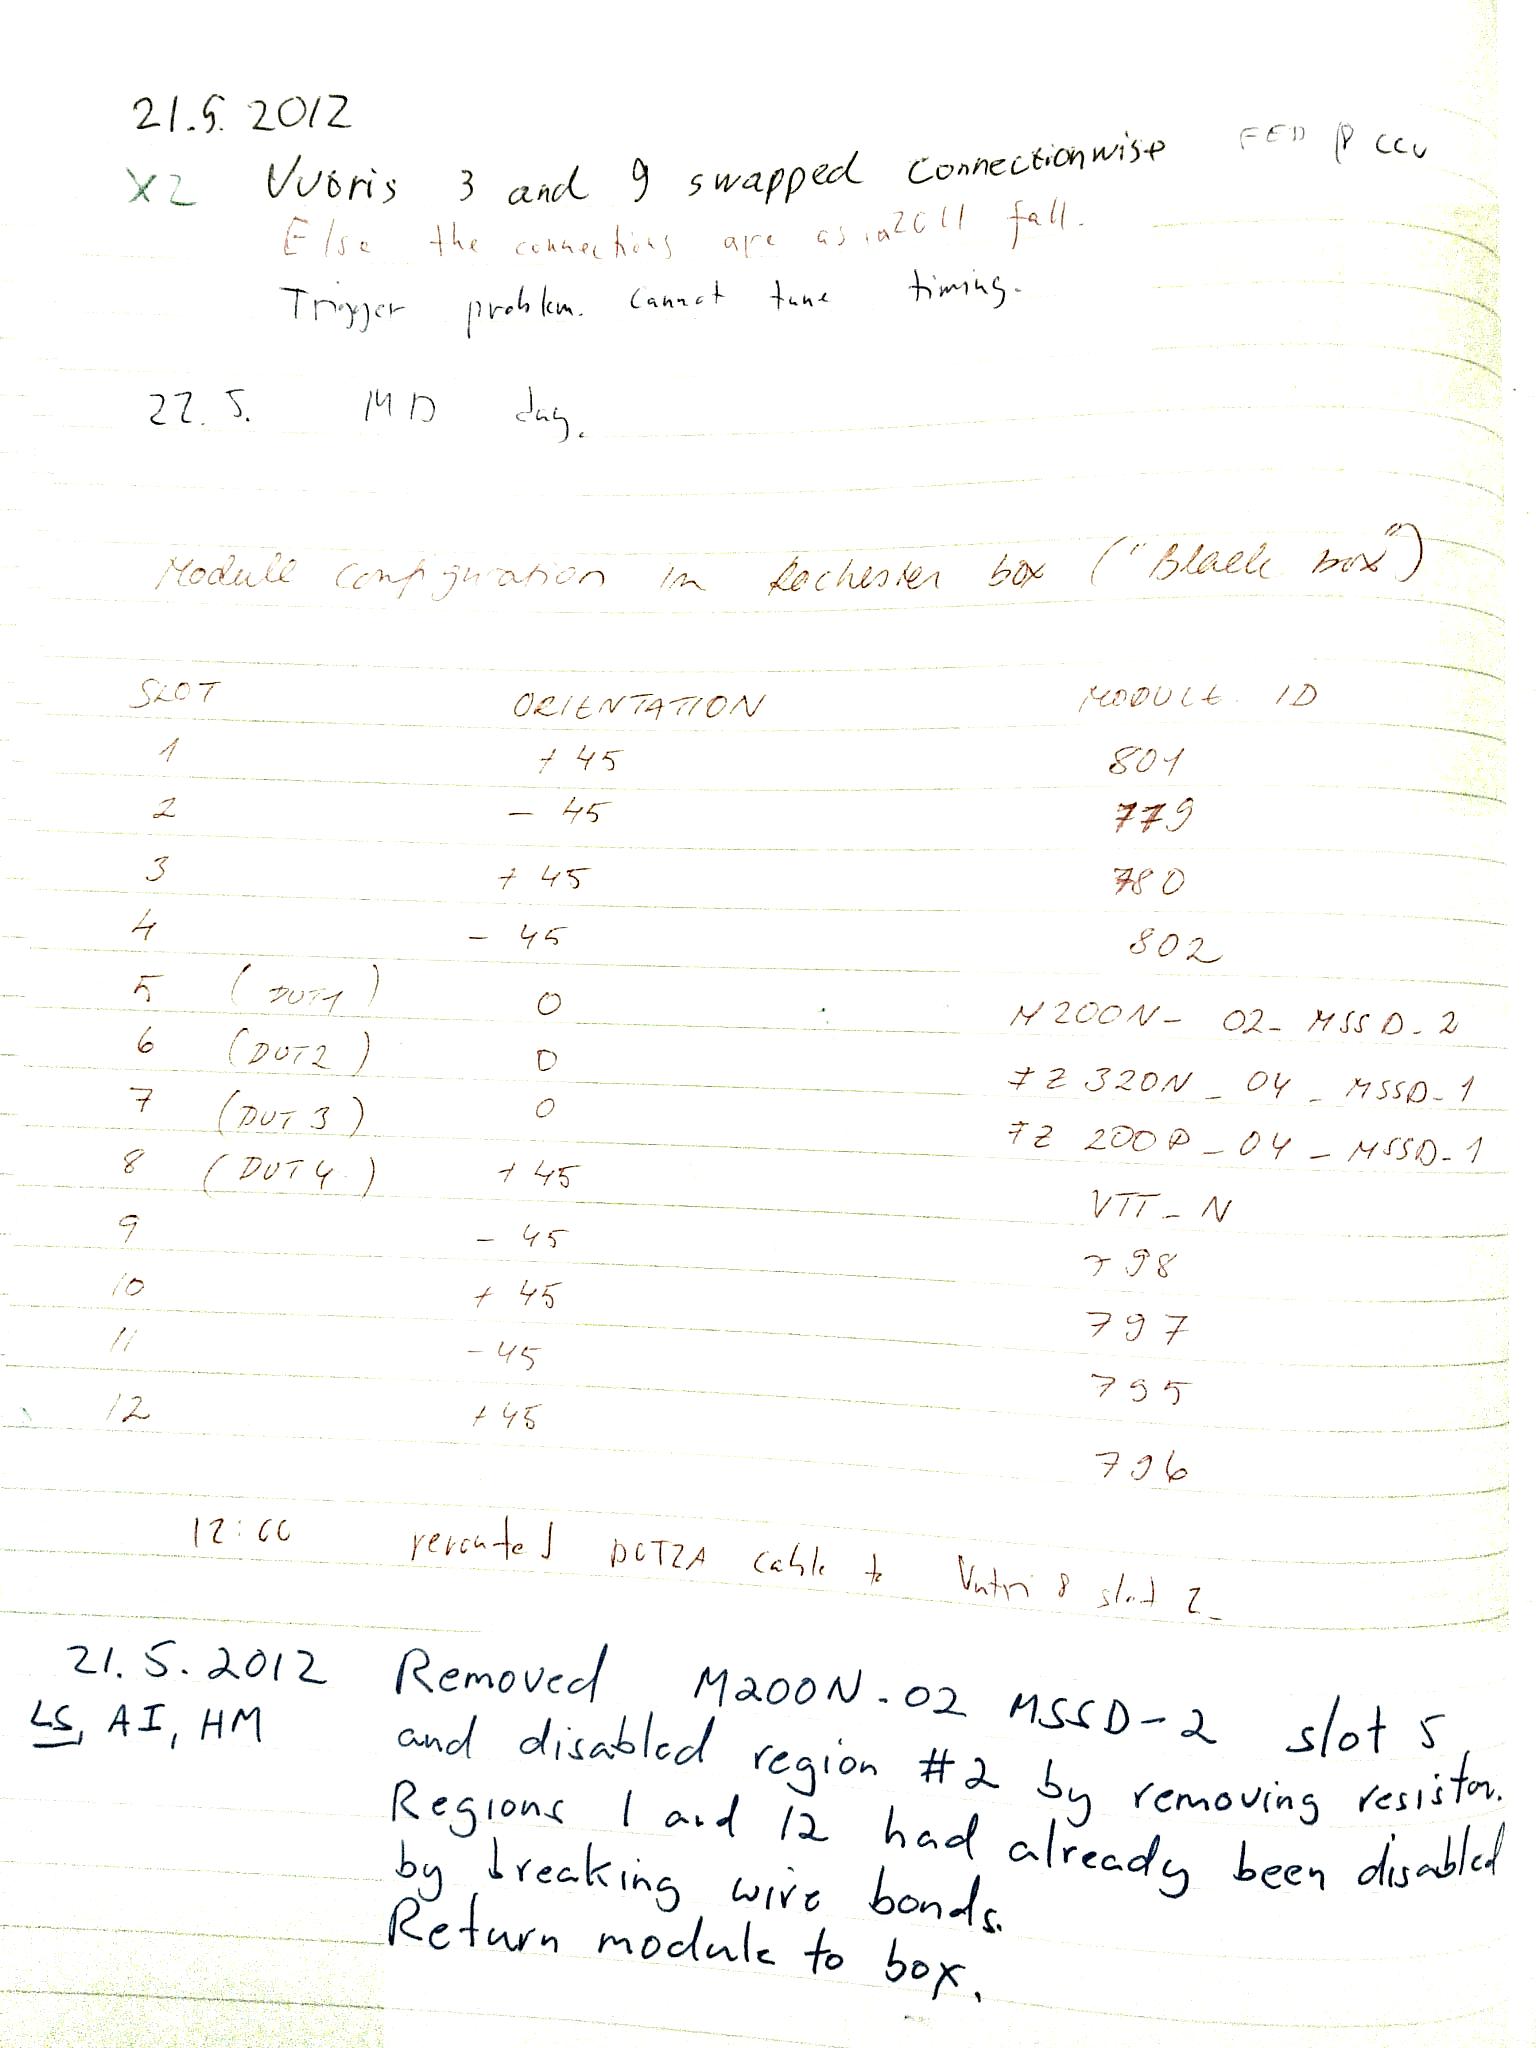 21.5. 2012
X2 Vuoris 3 and 9 swapped connectionwise FED & CCU
Else the connections are as in 2011 fall.
Trigger problem. Cannot tune timing.
22.5. MD day.
Module configuration in Rochester box ("Black box")
SLOT ORIENTATION MODULE ID
1 +45 801
2 - 45 779
3 +45 780
4 - 45 802
5 (DUT1) 0 M200N- 02- MSSD-2
6 (DUT2) 0 FZ 320N _ 04 _ MSSD-1
7 (DUT3) 0 FZ 200P _ 04 - MSSD-1
8 (DUT4) +45 VTT _ N
9 - 45 798
10 +45 797
11 -45 795
12 +45 796
12:00 rerouted DUT2A cable to Vutri 8 slot 2.
21.5.2012 Removed M200N-02 MSSD-2 slot 5
LS, AI, HM and disabled region #2 by removing resistor.
Regions 1 and 12 had already been disabled
by breaking wire bonds.
Return module to box.